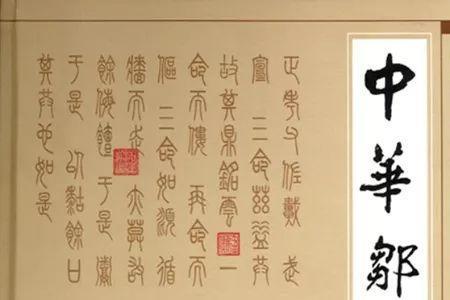 中華鄒
正考父佐戴 武
宣 三命茲益共
故其鼎銘雲 一
命而僂 再命而
傴 三命如 循
牆而走 亦莫敢
餘侮饘 于是鬻
于是 以餘口
其共也如是